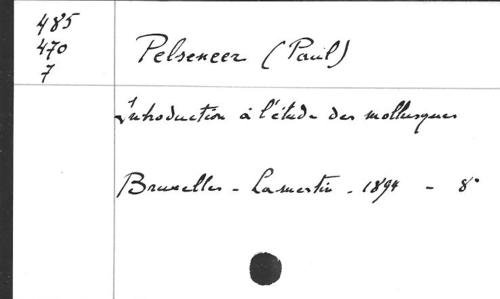 485
470
7
Pelseneer (Paul)
Introduction à l'étude des mollusques
Bruxelles - Lamertin - 1894 - 8°